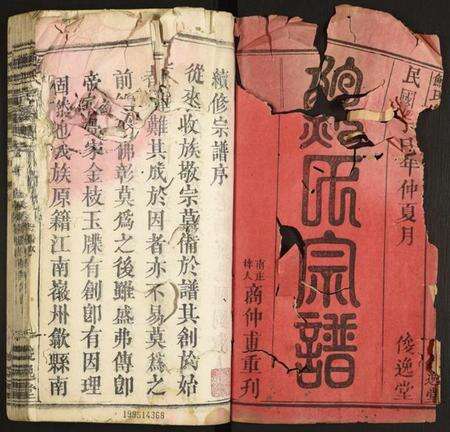 民國丁巳年仲夏月
鮑氏宗譜
俊逸堂
南庄
梓人
商仲甫重刊
續修宗譜序
從來收族敬宗莫備於譜其創於始
難其成於因者亦不易莫爲之
前彿彰莫爲之後雖盛弗傳卽
帝家金枝玉牒有創卽有因理
固然也我族原籍江南嚴州歙縣南
199514368